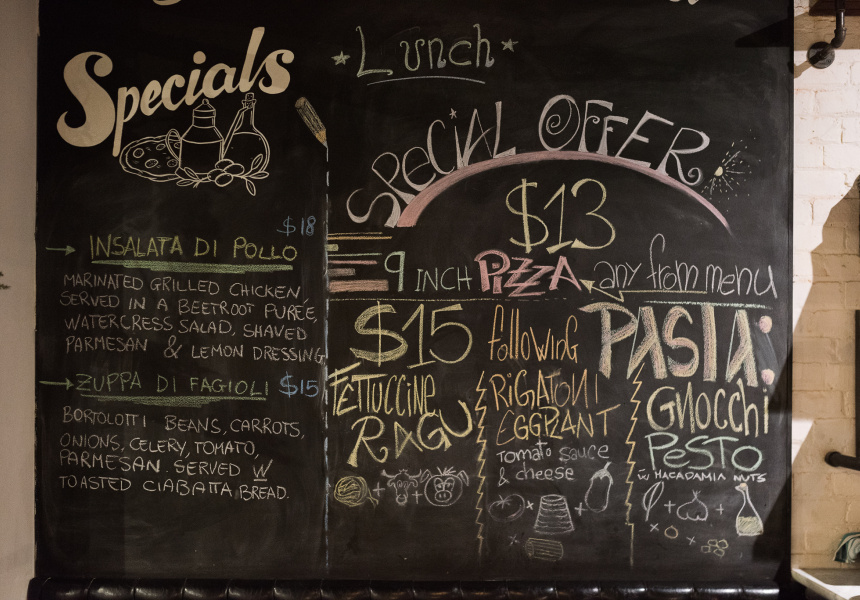 Specials
$18
INSALATA DI POLLO
MARINATED GRILLED CHICKEN,
SERVED IN A BEETROOT PURÉE,
WATERCRESS SALAD, SHAVED
PARMESAN & LEMON DRESSING
ZUPPA DI FAGIOLI $15
BORTOLOTTI BEANS, CARROTS,
ONIONS, CELERY, TOMATO,
PARMESAN SERVED W
TOASTED CIABATTA BREAD.
Lunch
SPECIAL OFFER
$13
9 INCH PIZZA any from menu
$15 following PASTA:
FETTUCCINE
RAGU
RIGATONI
EGGPLANT
tomato sauce
& cheese
GNOCCHI
PESTO
w/ MACADAMIA NUTS